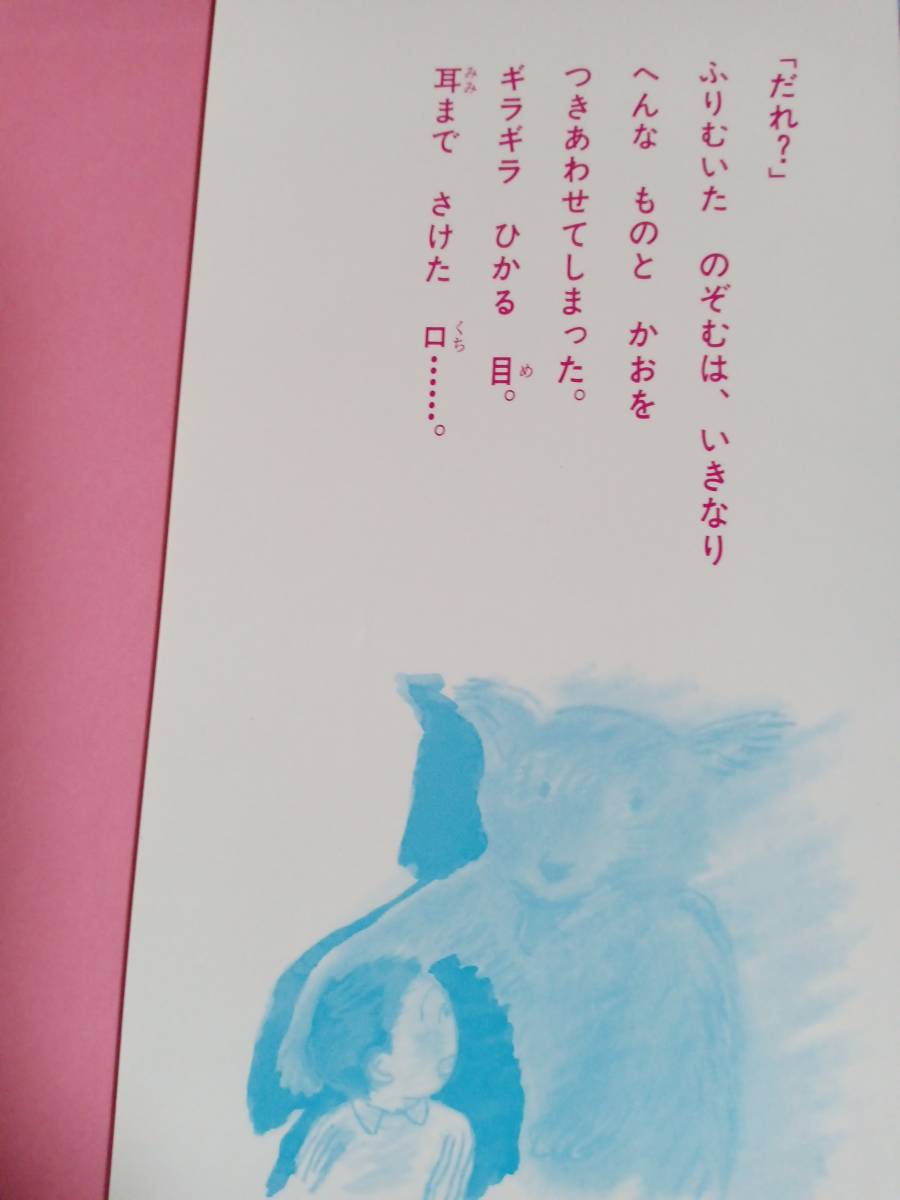 「だれ？」
ふりむいた　のぞむは、いきなり
へんな　ものと　かおを
つきあわせてしまった。
ギラギラ　ひかる　目。
耳まで　さけた　口……。